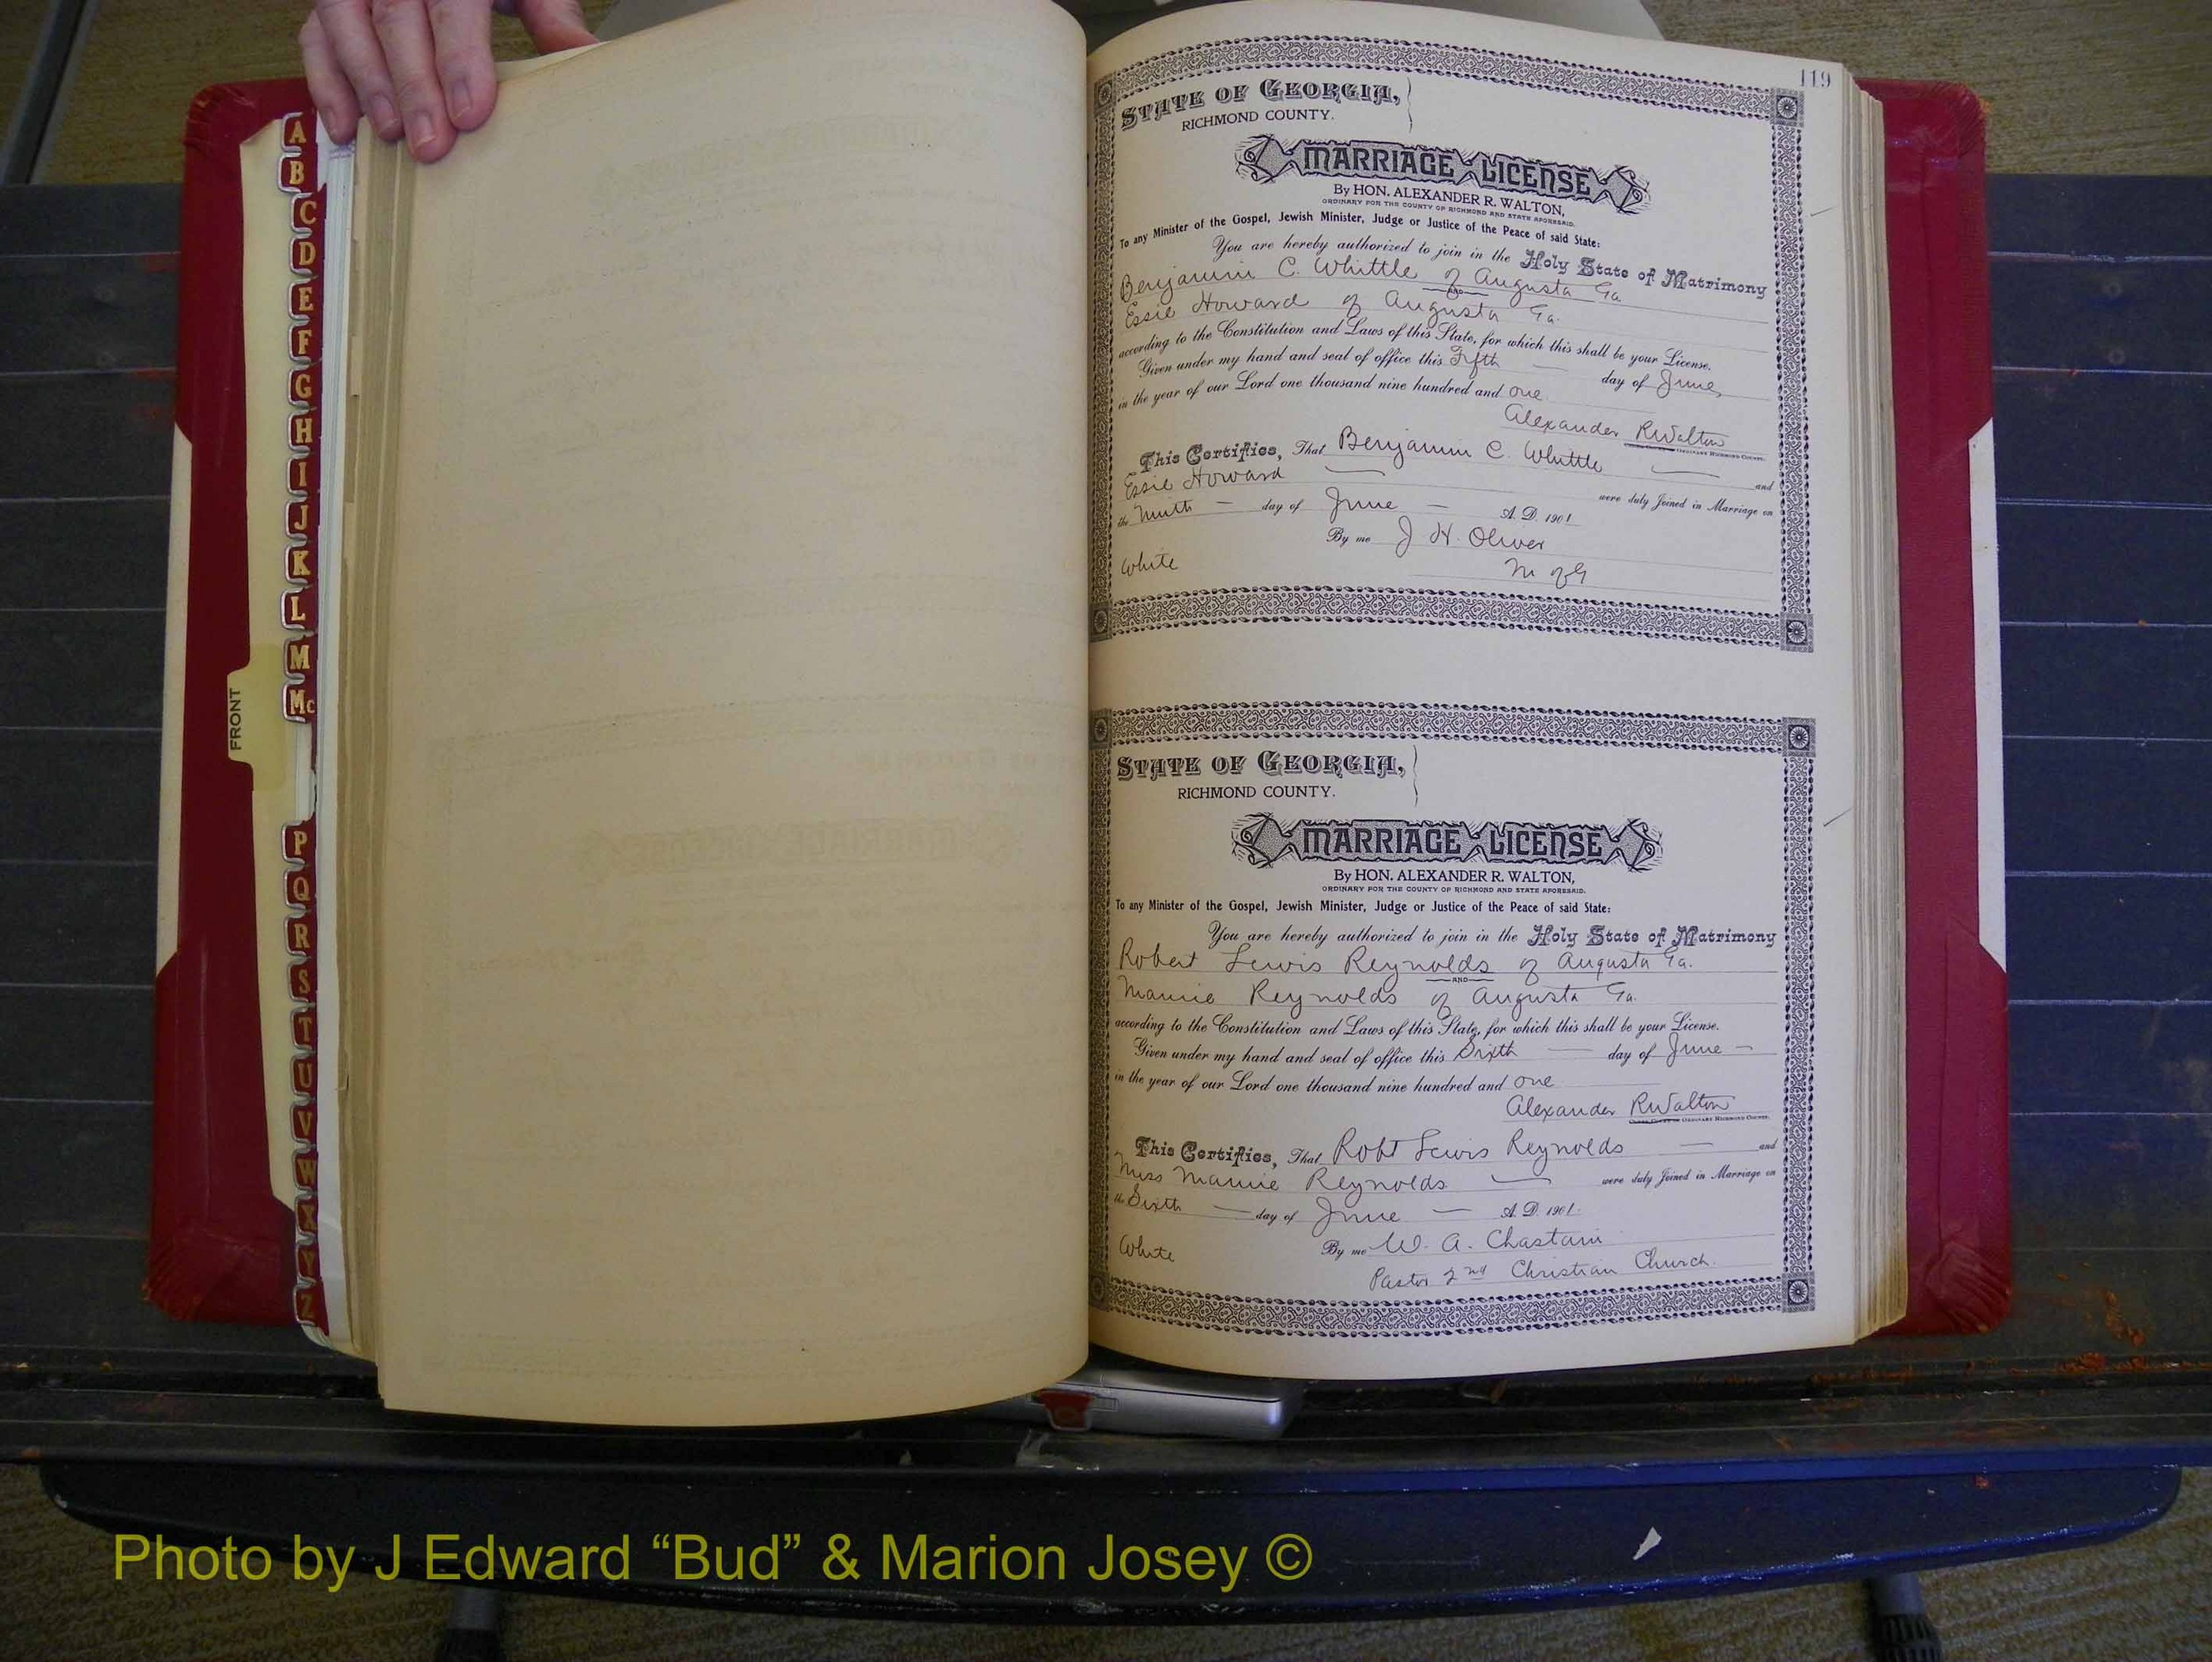 A
B
C
D
E
F
G
H
I
J
K
L
M
Mc
FRONT
P
Q
R
S
T
U
V
W
X
Y
Z
119
STATE OF GEORGIA,
RICHMOND COUNTY.
MARRIAGE LICENSE
By HON. ALEXANDER R. WALTON,
ORDINARY FOR THE COUNTY OF RICHMOND AND STATE AFORESAID.
To any Minister of the Gospel, Jewish Minister, Judge or Justice of the Peace of said State:
You are hereby authorized to join in the Holy State of Matrimony
Benjamin C. Whittle of Augusta Ga
AND
Essie Howard of Augusta Ga.
according to the Constitution and Laws of this State, for which this shall be your License.
Given under my hand and seal of office this Fifth day of June,
in the year of our Lord one thousand nine hundred and one
Alexander R Walton
ORDINARY RICHMOND COUNTY.
This Certifies, That Benjamin C. Whittle and
Essie Howard were duly Joined in Marriage on
the Ninth day of June A. D. 1901
By me J H. Oliver
White M of G
STATE OF GEORGIA,
RICHMOND COUNTY.
MARRIAGE LICENSE
By HON. ALEXANDER R. WALTON,
ORDINARY FOR THE COUNTY OF RICHMOND AND STATE AFORESAID.
To any Minister of the Gospel, Jewish Minister, Judge or Justice of the Peace of said State:
You are hereby authorized to join in the Holy State of Matrimony
Robert Lewis Reynolds of Augusta Ga.
AND
Mamie Reynolds of Augusta Ga.
according to the Constitution and Laws of this State, for which this shall be your License.
Given under my hand and seal of office this Sixth day of June
in the year of our Lord one thousand nine hundred and one
Alexander R Walton
ORDINARY RICHMOND COUNTY.
This Certifies, That Robt Lewis Reynolds and
Miss Mamie Reynolds were duly Joined in Marriage on
the Sixth day of June A. D. 1901.
By me W. A. Chastain
White Pastor 2nd Christian Church.
Photo by J Edward “Bud” & Marion Josey ©